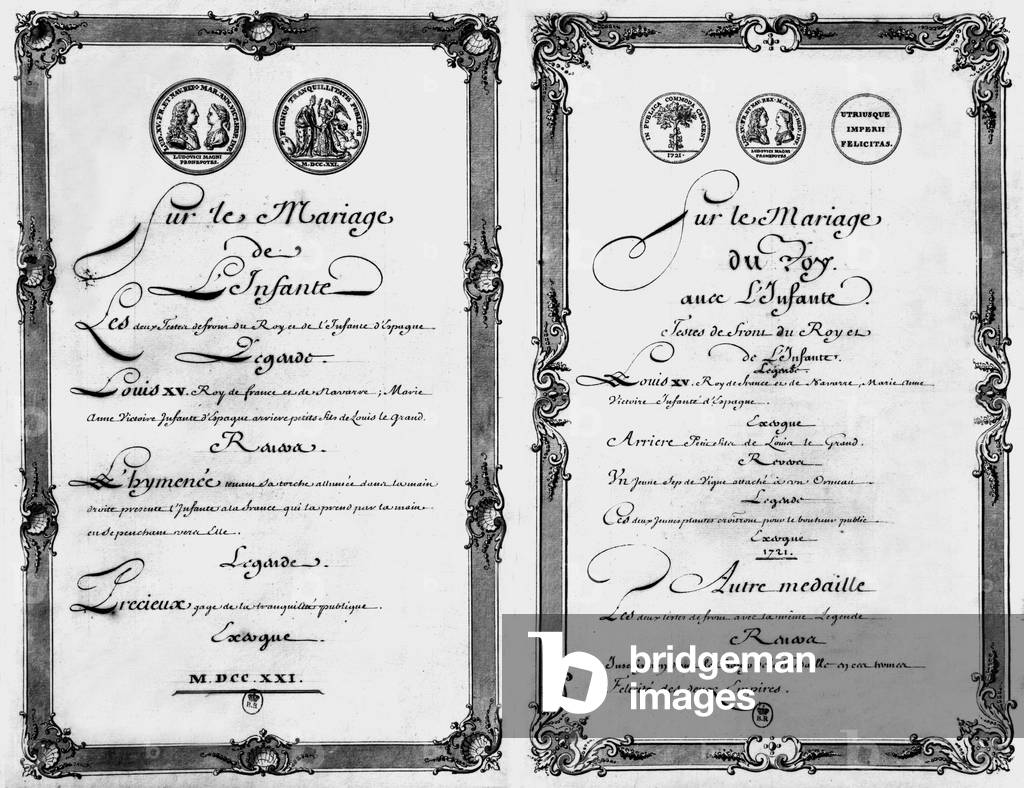 LUD. XV. FR. ET NAV. REX
LUDOVICI MAGNI
PRONEPOTES.
PIGNUS TRANQUILLITATIS PUBLICÆ
M.DCC.XXI.
Sur le Mariage
de
L'Infante
Les deux Testes de front du Roy et de l'Infante d'Espagne
Légende.
Louis XV. Roy de france et de Navarre; Marie
Anne Victoire Infante d'Espagne arriere petits fils de Louis le Grand.
Revers.
L'hymenée tenant sa torche allumée dans la main
droite presente l'Infante a la France qui la prend par la main
en se penchant vers Elle.
Legende.
Precieux gage de la tranquilité publique.
Exergue
M.DCC.XXI.
B.R
IN PUBLICA COMMODA CRESCENT
1721.
LUDOVICI MAGNI
PRONEPOTES
UTRIUSQUE
IMPERII
FELICITAS.
Sur le Mariage
du Roy.
avec L'Infante.
Testes de front du Roy et
de L'Infante.
Légende
Louis XV. Roy de France et de Navarre, Marie Anne
Victoire Infante d'Espagne.
Exergue
Arriere Petits fils de Louis le Grand.
Revers
Un Jeune Sep de Vigne attaché à un Ormeau
Legende
Ces deux Jeunes plantes croîtront pour le bonheur public.
Exergue
1721.
Autre medaille
Les deux têtes de front avec la même Légende
Revers
Félicité des deux Empires.
B.R
b bridgeman
images